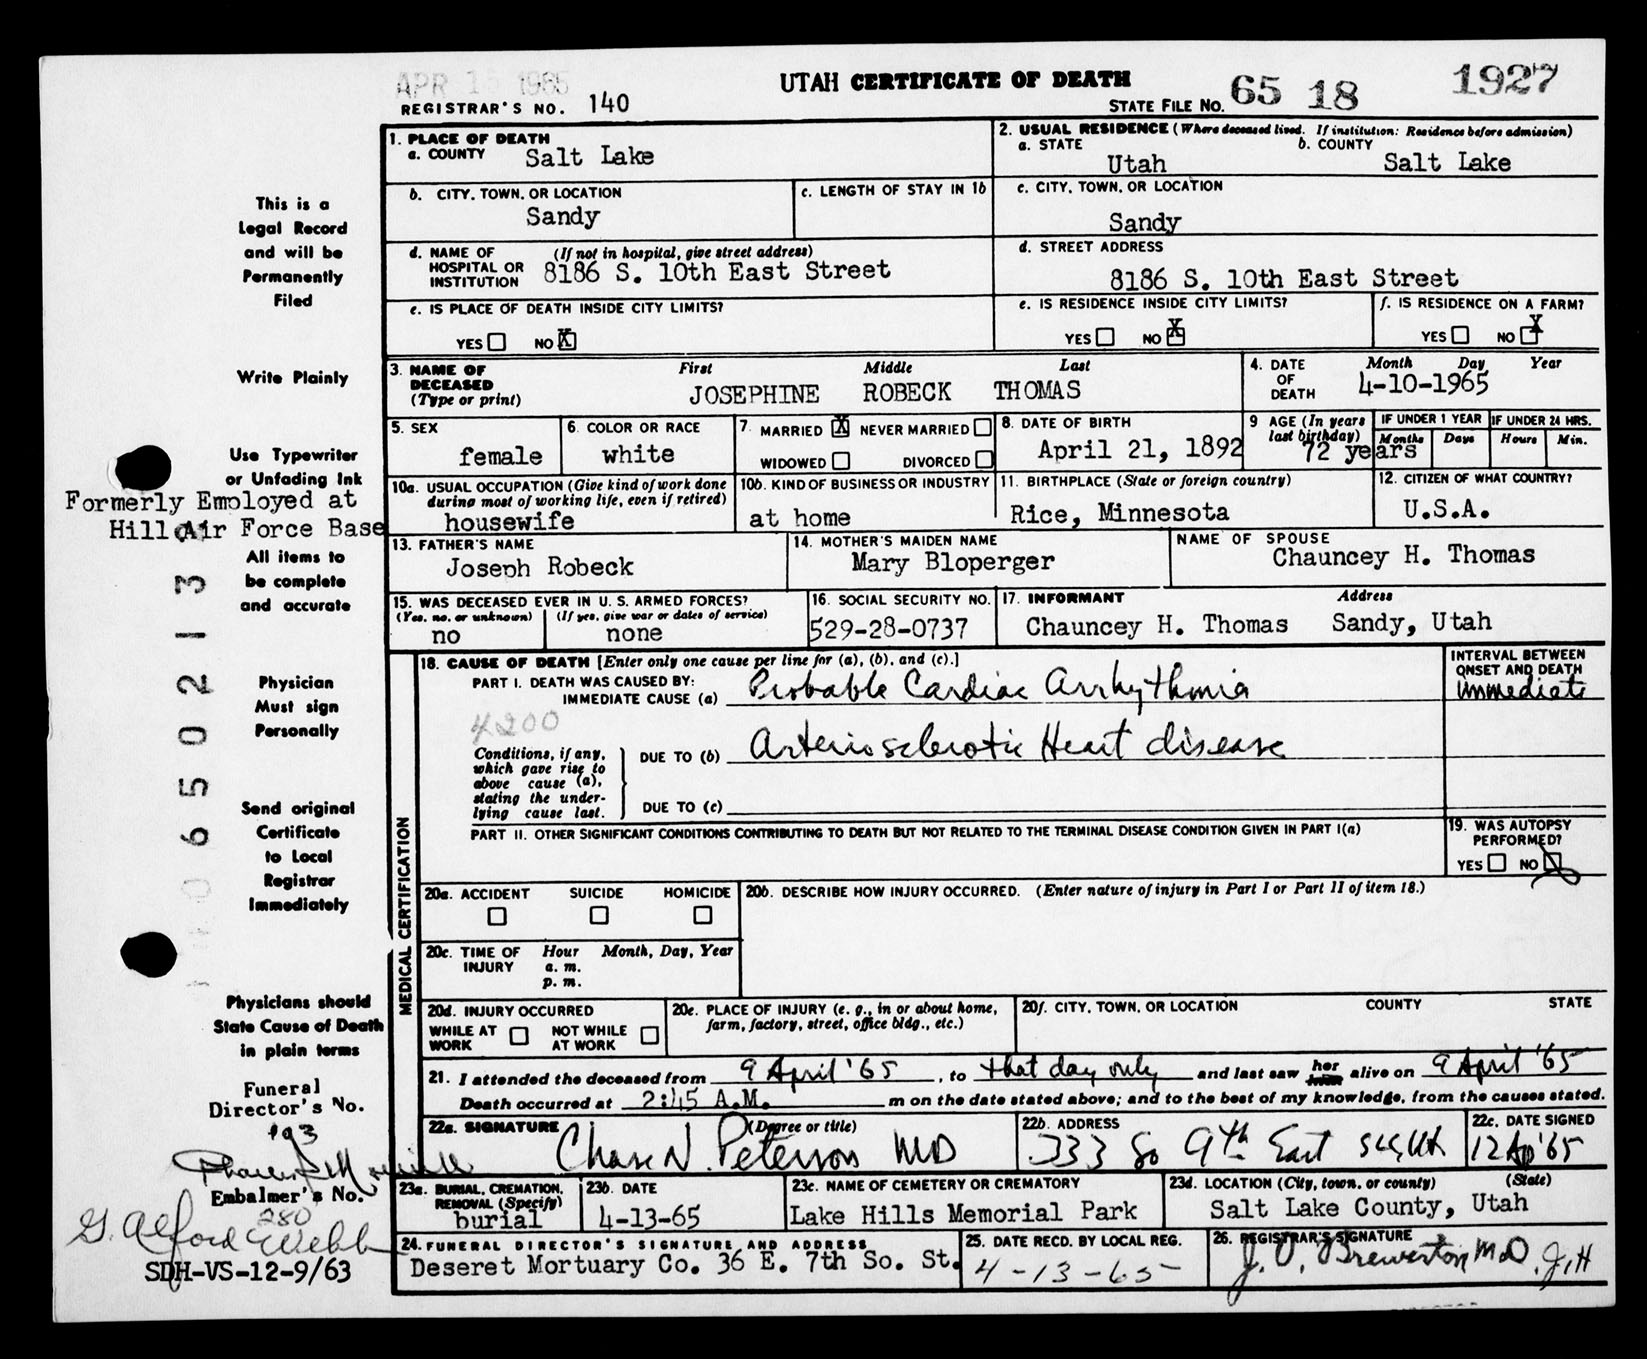 APR 15 1965
UTAH CERTIFICATE OF DEATH
REGISTRAR'S NO. 140
STATE FILE NO. 65 18 1927
1. PLACE OF DEATH
a. COUNTY Salt Lake
2. USUAL RESIDENCE (Where deceased lived. If institution: Residence before admission)
a. STATE Utah b. COUNTY Salt Lake
b. CITY, TOWN, OR LOCATION Sandy
c. LENGTH OF STAY IN 1b
c. CITY, TOWN, OR LOCATION Sandy
d. NAME OF HOSPITAL OR INSTITUTION (If not in hospital, give street address)
8186 S. 10th East Street
d. STREET ADDRESS
8186 S. 10th East Street
e. IS PLACE OF DEATH INSIDE CITY LIMITS?
YES NO X
e. IS RESIDENCE INSIDE CITY LIMITS?
YES NO X
f. IS RESIDENCE ON A FARM?
YES NO X
3. NAME OF DECEASED (Type or print)
First Middle Last
JOSEPHINE ROBECK THOMAS
4. DATE OF DEATH Month Day Year
4-10-1965
5. SEX female
6. COLOR OR RACE white
7. MARRIED X NEVER MARRIED
WIDOWED DIVORCED
8. DATE OF BIRTH
April 21, 1892
9 AGE (In years last birthday)
72 years
IF UNDER 1 YEAR
Months Days
IF UNDER 24 HRS.
Hours Min.
10a. USUAL OCCUPATION (Give kind of work done during most of working life, even if retired)
housewife
10b. KIND OF BUSINESS OR INDUSTRY
at home
11. BIRTHPLACE (State or foreign country)
Rice, Minnesota
12. CITIZEN OF WHAT COUNTRY?
U.S.A.
13. FATHER'S NAME
Joseph Robeck
14. MOTHER'S MAIDEN NAME
Mary Bloperger
NAME OF SPOUSE
Chauncey H. Thomas
15. WAS DECEASED EVER IN U. S. ARMED FORCES?
(Yes, no, or unknown) (If yes, give war or dates of service)
no none
16. SOCIAL SECURITY NO.
529-28-0737
17. INFORMANT Address
Chauncey H. Thomas Sandy, Utah
MEDICAL CERTIFICATION
18. CAUSE OF DEATH [Enter only one cause per line for (a), (b), and (c).]
INTERVAL BETWEEN ONSET AND DEATH
PART I. DEATH WAS CAUSED BY:
IMMEDIATE CAUSE (a) Probable Cardiac Arrhythmia immediate
4200
Conditions, if any, which gave rise to above cause (a), stating the underlying cause last.
DUE TO (b) Arteriosclerotic Heart disease
DUE TO (c)
PART II. OTHER SIGNIFICANT CONDITIONS CONTRIBUTING TO DEATH BUT NOT RELATED TO THE TERMINAL DISEASE CONDITION GIVEN IN PART I(a)
19. WAS AUTOPSY PERFORMED?
YES NO
20a. ACCIDENT SUICIDE HOMICIDE
20b. DESCRIBE HOW INJURY OCCURRED. (Enter nature of injury in Part I or Part II of item 18.)
20c. TIME OF INJURY Hour Month, Day, Year
a. m.
p. m.
20d. INJURY OCCURRED
WHILE AT WORK NOT WHILE AT WORK
20e. PLACE OF INJURY (e. g., in or about home, farm, factory, street, office bldg., etc.)
20f. CITY, TOWN, OR LOCATION COUNTY STATE
21. I attended the deceased from 9 April '65, to that day only and last saw her alive on 9 April '65
Death occurred at 2:45 A.M. m on the date stated above; and to the best of my knowledge, from the causes stated.
22a. SIGNATURE (Degree or title)
Chase N. Peterson MD
22b. ADDRESS
333 So 9th East SLC, Ut
22c. DATE SIGNED
12 Ap '65
23a. BURIAL, CREMATION, REMOVAL (Specify)
burial
23b. DATE
4-13-65
23c. NAME OF CEMETERY OR CREMATORY
Lake Hills Memorial Park
23d. LOCATION (City, town, or county) (State)
Salt Lake County, Utah
24. FUNERAL DIRECTOR'S SIGNATURE AND ADDRESS
Deseret Mortuary Co. 36 E. 7th So. St.
25. DATE RECD. BY LOCAL REG.
4-13-65
26. REGISTRAR'S SIGNATURE
J. O. Brewerton, M.D. J,H
This is a
Legal Record
and will be
Permanently
Filed
Write Plainly
Use Typewriter
or Unfading Ink
Formerly Employed at
Hill Air Force Base
All items to
be complete
and accurate
Physician
Must sign
Personally
Send original
Certificate
to Local
Registrar
Immediately
Physicians should
State Cause of Death
in plain terms
Funeral
Director's No.
193
Embalmer's No.
280
G. Alford Webb
SDH-VS-12-9/63
0 6 5 0 2 1 3